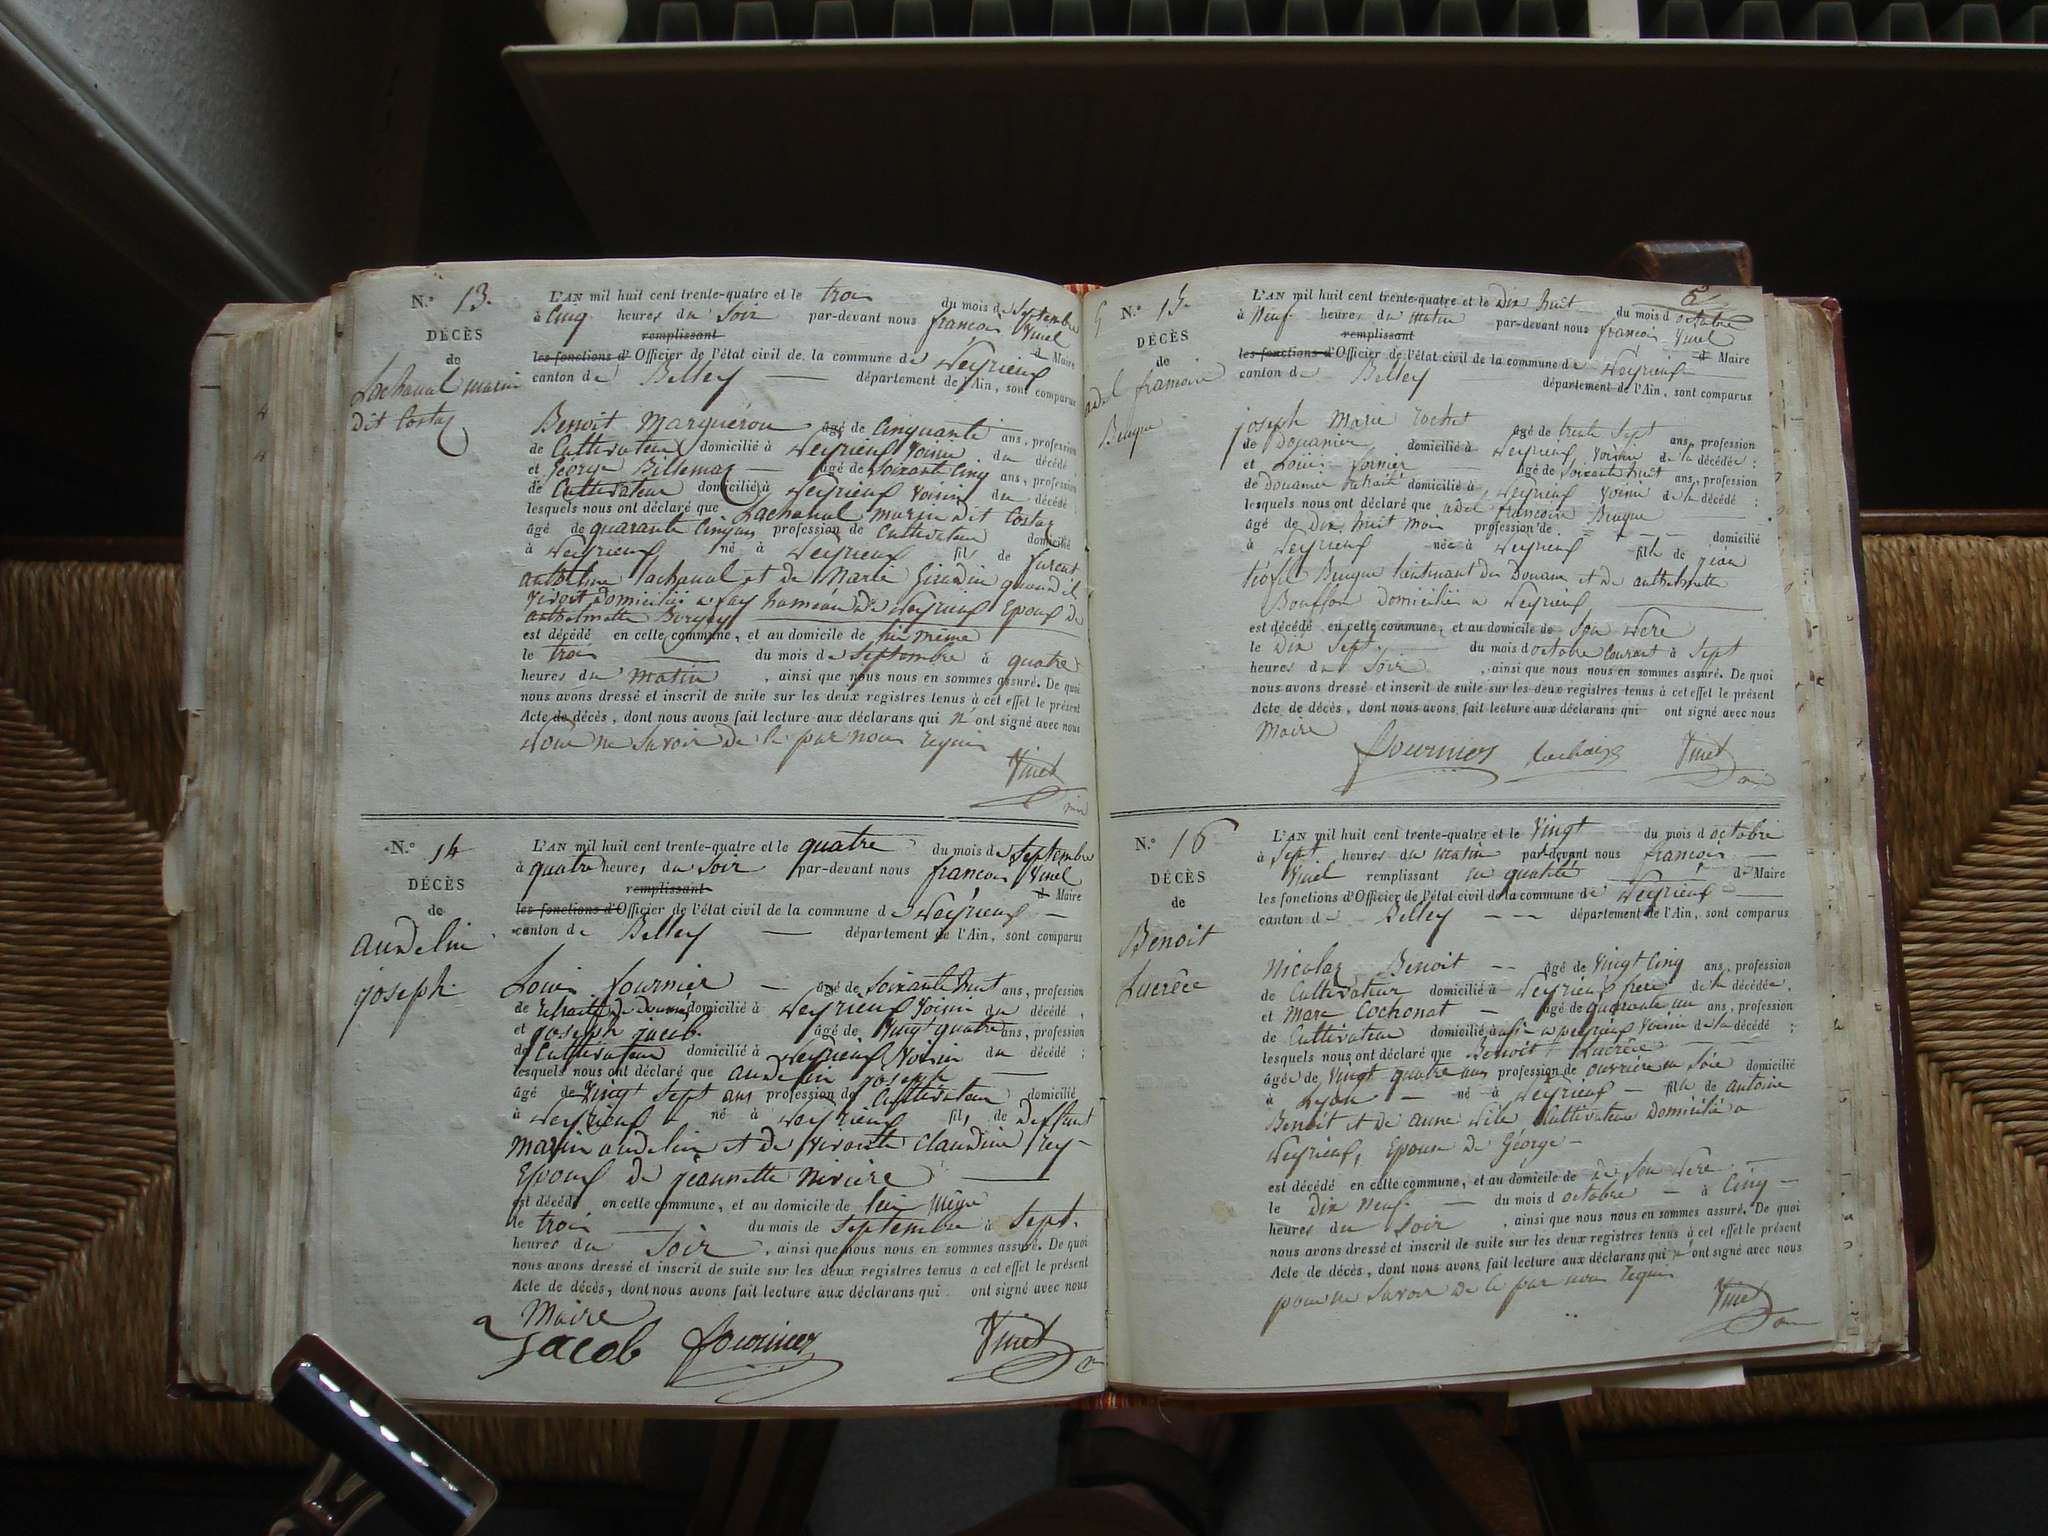 N.º 13.
DÉCÈS
de
Lachanal marin
dit Costaz
L'AN mil huit cent trente-quatre et le trois du mois de Septembre
à Cinq heures du Soir par-devant nous francois Vinel
remplissant d Maire
les fonctions d'Officier de l'état civil de la commune de Veyrieuf
canton de Belley département de l'Ain, sont comparus
Benoit Marguerou âgé de Cinquante ans, profession
de Cultivateur domicilié à Veyrieuf voisin du décédé
et George Billemaz âgé de soixante cinq ans, profession
de Cultivateur domicilié à Veyrieuf voisin du décédé
lesquels nous ont déclaré que Lachanal marin dit Costaz
âgé de quarante cinq ans profession de Cultivateur domicilié
à Veyrieuf né à Veyrieuf fils de furent
anthelme lachanal et de Marie Girardin quand il
vivoit domiciliés a fay hameau de Veyrieuf Epoux de
anthelmette
est décédé en cette commune, et au domicile de lui même
le trois du mois de septembre à quatre
heures du matin , ainsi que nous nous en sommes assuré. De quoi
nous avons dressé et inscrit de suite sur les deux registres tenus à cet effet le présent
Acte de décès, dont nous avons fait lecture aux déclarans qui n'ont signé avec nous
pour ne savoir de ce par nous requis
Vinel
N.º 14
DÉCÈS
de
audelin
joseph
L'AN mil huit cent trente-quatre et le quatre du mois de Septembre
à quatre heures du Soir par-devant nous francois Vinel
remplissant d Maire
les fonctions d'Officier de l'état civil de la commune de Veyrieuf
canton de Belley département de l'Ain, sont comparus
Louis fournier âgé de soixante huit ans, profession
de retraité de douane domicilié à Veyrieuf voisin du décédé,
et joseph jacob âgé de vingt quatre ans, profession
de Cultivateur domicilié à Veyrieuf voisin du décédé ;
lesquels nous ont déclaré que audelin joseph
âgé de vingt sept ans profession de Cultivateur domicilié
à Veyrieuf né à Veyrieuf fils de deffunt
marin audelin et de vivante claudine rey
Epoux de jeannette riviere
est décédé en cette commune, et au domicile de lui même
le trois du mois de septembre à sept
heures du soir , ainsi que nous nous en sommes assuré. De quoi
nous avons dressé et inscrit de suite sur les deux registres tenus à cet effet le présent
Acte de décès, dont nous avons fait lecture aux déclarans qui ont signé avec nous
Maire
Jacob fournier Vinel
5
N.º 15
DÉCÈS
de
adel francoise
Bieuque
L'AN mil huit cent trente-quatre et le Dix huit du mois d octobre
à Neuf heures du matin par-devant nous francois Vinel
remplissant d Maire
les fonctions d'Officier de l'état civil de la commune de Veyrieuf
canton de Belley département de l'Ain, sont comparus
joseph Marie âgé de trente sept ans, profession
de Douanier domicilié à Veyrieuf voisin de la décédée ;
et Louis fornier âgé de soixante huit ans, profession
de Douanier retraité domicilié à Veyrieuf voisin de la décédé ;
lesquels nous ont déclaré que adel francoise Bieuque
âgé de Dix huit mois profession de domicilié
à Veyrieuf née à Veyrieuf fille de jean
Bieuque lieutenant des Douane et de anthelmette
Bouffon domiciliés a Veyrieuf
est décédé en cette commune, et au domicile de son père
le dix sept du mois d octobre courant à sept
heures du soir , ainsi que nous nous en sommes assuré. De quoi
nous avons dressé et inscrit de suite sur les deux registres tenus à cet effet le présent
Acte de décès, dont nous avons fait lecture aux déclarans qui ont signé avec nous
Maire
fournier Vinel
N.º 16
DÉCÈS
de
Benoit
Lucrêce
L'AN mil huit cent trente-quatre et le vingt du mois d octobre
à sept heures du matin par-devant nous francois
Vinel remplissant en qualité de Maire
les fonctions d'Officier de l'état civil de la commune de Veyrieuf
canton de Belley département de l'Ain, sont comparus
Nicolas Benoit âgé de vingt cinq ans, profession
de Cultivateur domicilié à Veyrieuf frere de la décédée,
et Marc Cochonat âgé de quarante un ans, profession
de Cultivateur domicilié aussi a veyrieuf voisin de la décédé ;
lesquels nous ont déclaré que Benoit Lucrêce
âgée de vingt quatre ans profession de ouvrière en soie domicilié
à Lyon né à Veyrieuf fille de antoine
Benoit et de anne cultivateur domiciliés a
Veyrieuf, Epouse de George
est décédé en cette commune, et au domicile de de son père
le dix neuf du mois d octobre à cinq
heures du soir , ainsi que nous nous en sommes assuré. De quoi
nous avons dressé et inscrit de suite sur les deux registres tenus à cet effet le présent
Acte de décès, dont nous avons fait lecture aux déclarans qui n'ont signé avec nous
pour ne savoir de ce par nous requis
Vinel